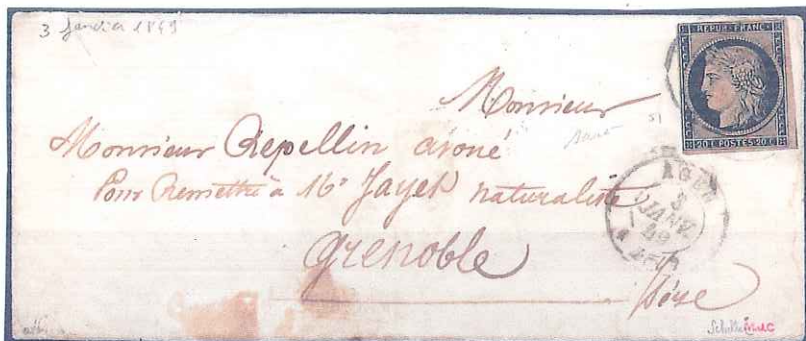 3 Janvier 1849
REPUB. FRANC.
20 C. POSTES. 20 C.
Monsieur
Monsieur Repellin avoué
Pour Remettre à Mr Jayet naturaliste
Grenoble
Isère
AGEN
3
JANV.
49